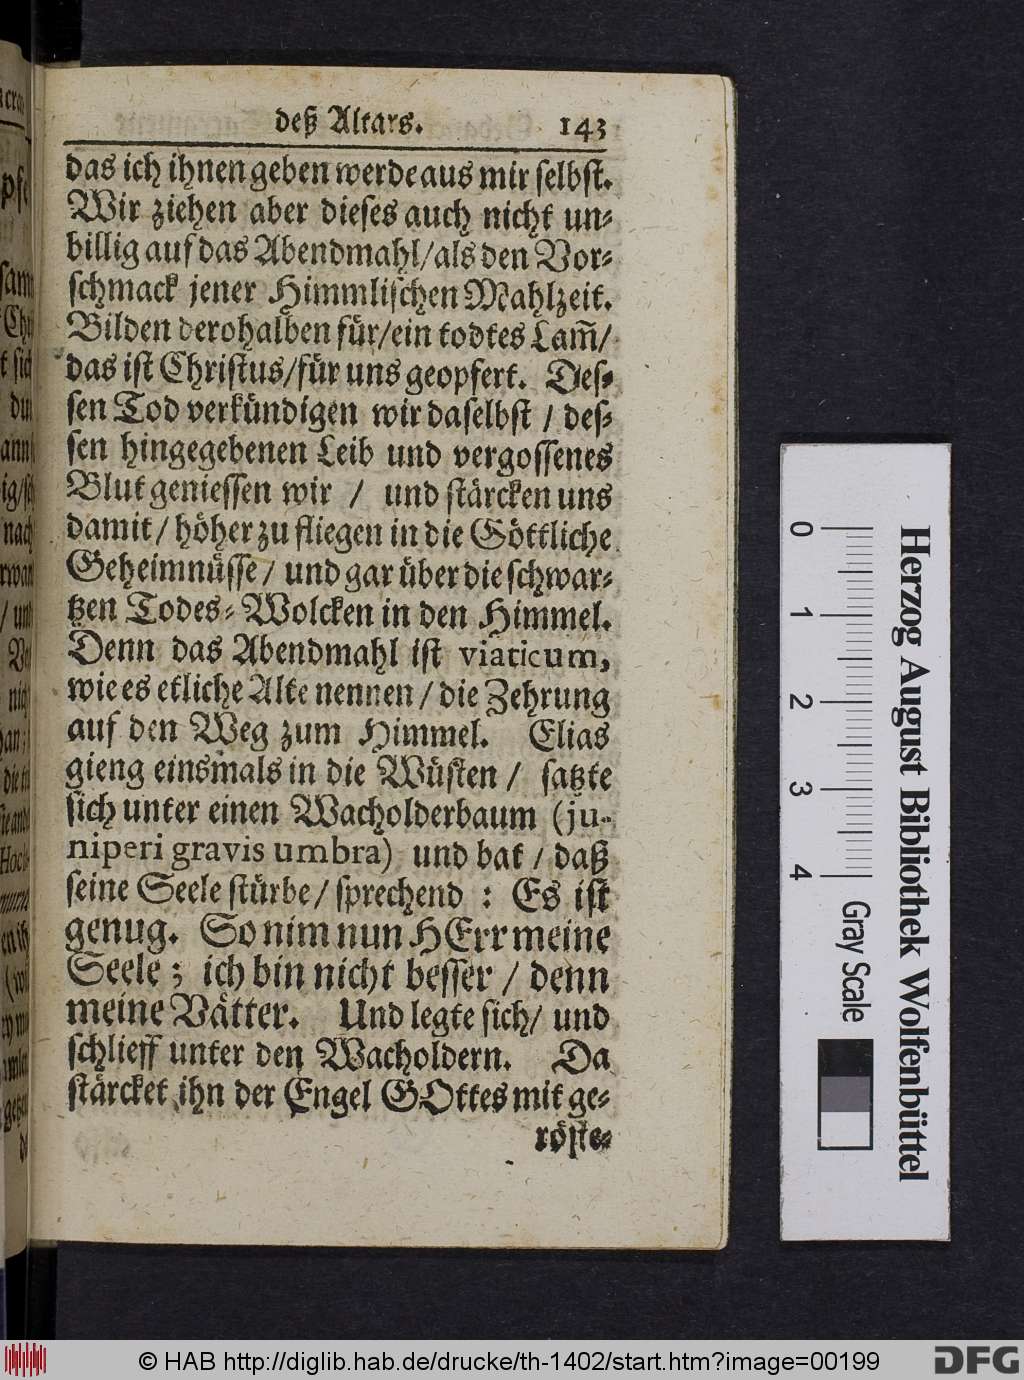 deß Altars. 143
das ich ihnen geben werde aus mir selbst.
Wir ziehen aber dieses auch nicht un-
billig auf das Abendmahl/als den Vor-
schmack jener Himmlischen Mahlzeit.
Bilden derohalben für/ein todtes Lam̃/
das ist Christus/für uns geopfert. Des-
sen Tod verkündigen wir daselbst / des-
sen hingegebenen Leib und vergossenes
Blut geniessen wir / und stärcken uns
damit/ höher zu fliegen in die Göttliche
Geheimnüsse/ und gar über die schwar-
tzen Todes-Wolcken in den Himmel.
Denn das Abendmahl ist viaticum,
wie es etliche Alte nennen/ die Zehrung
auf den Weg zum Himmel. Elias
gieng einsmals in die Wüsten/ satzte
sich unter einen Wacholderbaum (ju-
niperi gravis umbra) und bat/ daß
seine Seele stürbe/ sprechend : Es ist
genug. So nim nun HErr meine
Seele; ich bin nicht besser/ denn
meine Vätter. Und legte sich/ und
schlieff unter den Wacholdern. Da
stärcket ihn der Engel GOttes mit ge-
röste-
Herzog August Bibliothek Wolfenbüttel
0 1 2 3 4
Gray Scale
© HAB http://diglib.hab.de/drucke/th-1402/start.htm?image=00199
DFG